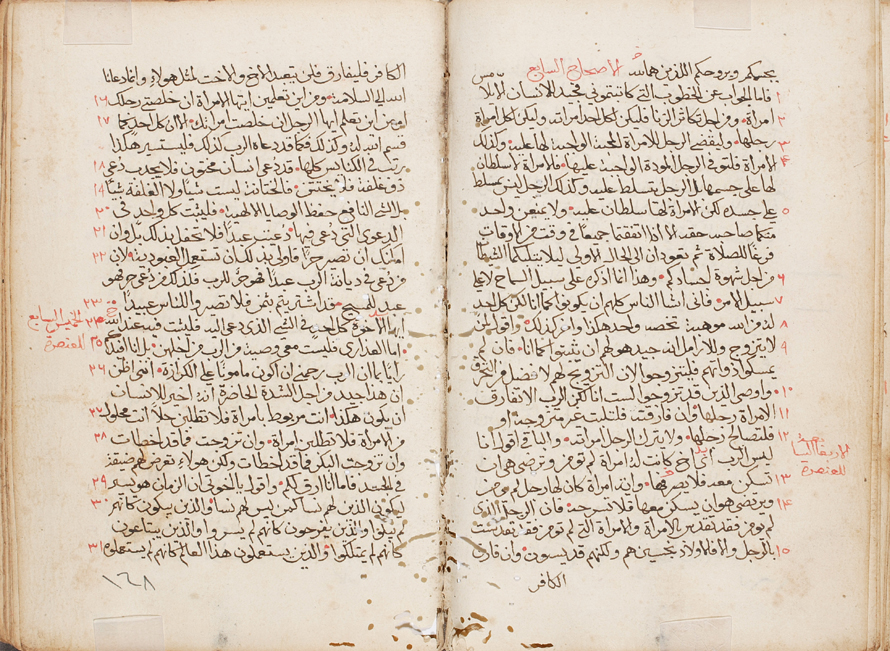 بجسمكم وبروحكم اللذين هما لله الاصحاح السابع
١ فاما الجواب عن الخطوب التي كاتبتموني فخير للانسان الا يلامس
٢ امراة ومن اجل تكاثر الزنا فليكن لكل احد امراته وليكن لكل امراة
٣ رجلها وليقضي الرجل للامراة المحبة الواجبة لها عليه وكذلك
٤ الامراة فلتوف الرجل المودة الواجبة عليها فالامراة لا سلطان
لها على جسمها بل الرجل يتسلط عليه وكذلك الرجل ليس يتسلط
٥ على جسده لكن الامراة لها سلطان عليه ولا يمنعن واحد
منكما صاحبه حقه الا اذا اتفقتما جميعا في وقت من الاوقات
فرغتا للصلاة ثم تعودان الى الحال الاولى ليلا يبتليكما الشيطان
٦ من اجل شهوة اجسادكم وهذا انما اذكره على سبيل السماح لا على
٧ سبيل الامر فاني اشا الناس كلهم ان يكونوا كما انا لكن كل احد
٨ له من الله موهبة تخصه واحد هكذا واخر كذلك واقول لمن
٩ لا يتزوج وللارامل انه جيد هو لهم ان يثبتوا كما انا فان لم
يمسكوا ذواتهم فليتزوجوا لان التزويج لهم لافضل من التحرق
١٠ واوصي الذين قد تزوجوا لست انا لكن الرب الا تفارق
١١ الامراة رجلها وان فارقته فلتلبث غير متزوجة او
١٢ فلتصالح رجلها ولا يترك الرجل امراته والباقي اقول انا
ليس الرب اي اخ كانت له امراة لم تومن وترتضي هي ان
١٣ تسكن معه فلا يصرفها واية امراة كان لها رجل لم يومن
١٤ ويرتضي هو ان يسكن معها فلا تسرحه فان الرجل الذي
لم يومن فقد تقدس بالامراة والامراة التي لم تومن فقد تقدست
١٥ بالرجل والا فاولادكم نجسين هم ولكنهم قديسون وان فارق
الكافر
الكافر فليفارق فلن يتعبد الاخ والاخت لمثل هولاء وانما دعانا
١٦ الله الى السلامة ومن اين تعلمين ايتها الامراة ان خلصتي رجلك
١٧ او من اين تعلم ايها الرجل ان خلصت امراتك الا ان كل احد كما
قسم الله له وكذلك فكما قد دعاه الرب كذلك فليسير هكذا
١٨ رتبت في الكنائس كلها قد دعي انسان مختون فلا يجذب دعي
١٩ ذو غلفة فلا يختتن فالختانة ليست شيئا ولا الغلفة شيئا
٢٠ بل الشي النافع حفظ الوصايا الالهية فليثبت كل واحد في
٢١ الدعوى التي دعي فيها دعيت عبدا فلا تحفل بذلك بل وان
٢٢ امكنك ان تصير حرا فاولى بذلك ان تستعمل العبودية لان
من دعي في ديانة الرب عبدا فهو حر للرب كذلك من دعي حر فهو
٢٣ عبد للمسيح قد اشتريتم بثمن فلا تصيروا للناس عبيدا
٢٤ ايها الاخوة كل احد في الشي الذي دعي اليه فليثبت فيه عند الله
٢٥ اما العذارى فليست معي وصية من الرب من اجلهن بل انا افيدكم
٢٦ رايا بما ان الرب رحمني ان اكون مامونا على الكرازة انني اظن
ان هذا جيد من اجل الشدة الحاضرة انه اخير للانسان
٢٧ ان يكون هكذا انت مربوط بامراة فلا تطلبن حلا انت محلول
٢٨ من الامراة فلا تطلبن امراة وان تزوجت فما قد اخطات
وان تزوجت البكر فما قد اخطات ولكن هولاء تعرض لهم ضيقة
٢٩ في الجسد فاما انا ارق لكم واقول يا اخوتي ان الزمان هو يسير
٣٠ ليكون الذين لهم نسا كمن ليس لهم نسا والذين يبكون كانهم
لم يبكوا والذين يفرحون كانهم لم يسروا والذين يبتاعون
٣١ كانهم لم يمتلكوا والذين يستعملون هذا العالم كانهم لم يستعملوه
الخميس السابع
للعنصرة
للعنصرة
١٦٨